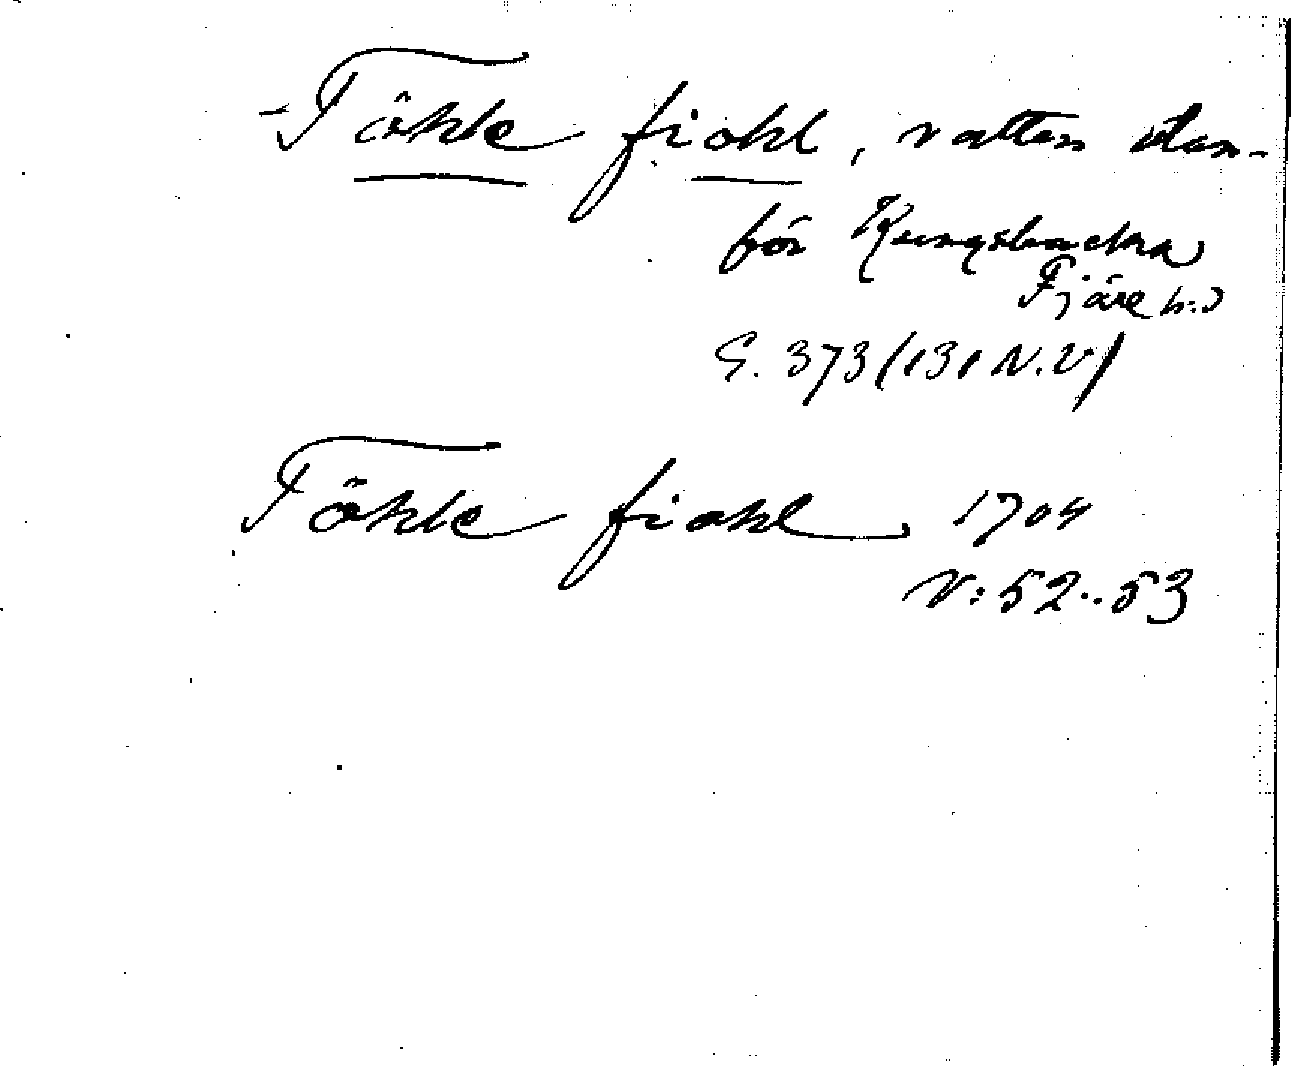 Töhle fiohl, vatten utan-
för Kungsbacka
Fjäre h.d
G. 373 (131 N.V)
Töhle fiohl 1704
N: 52..53